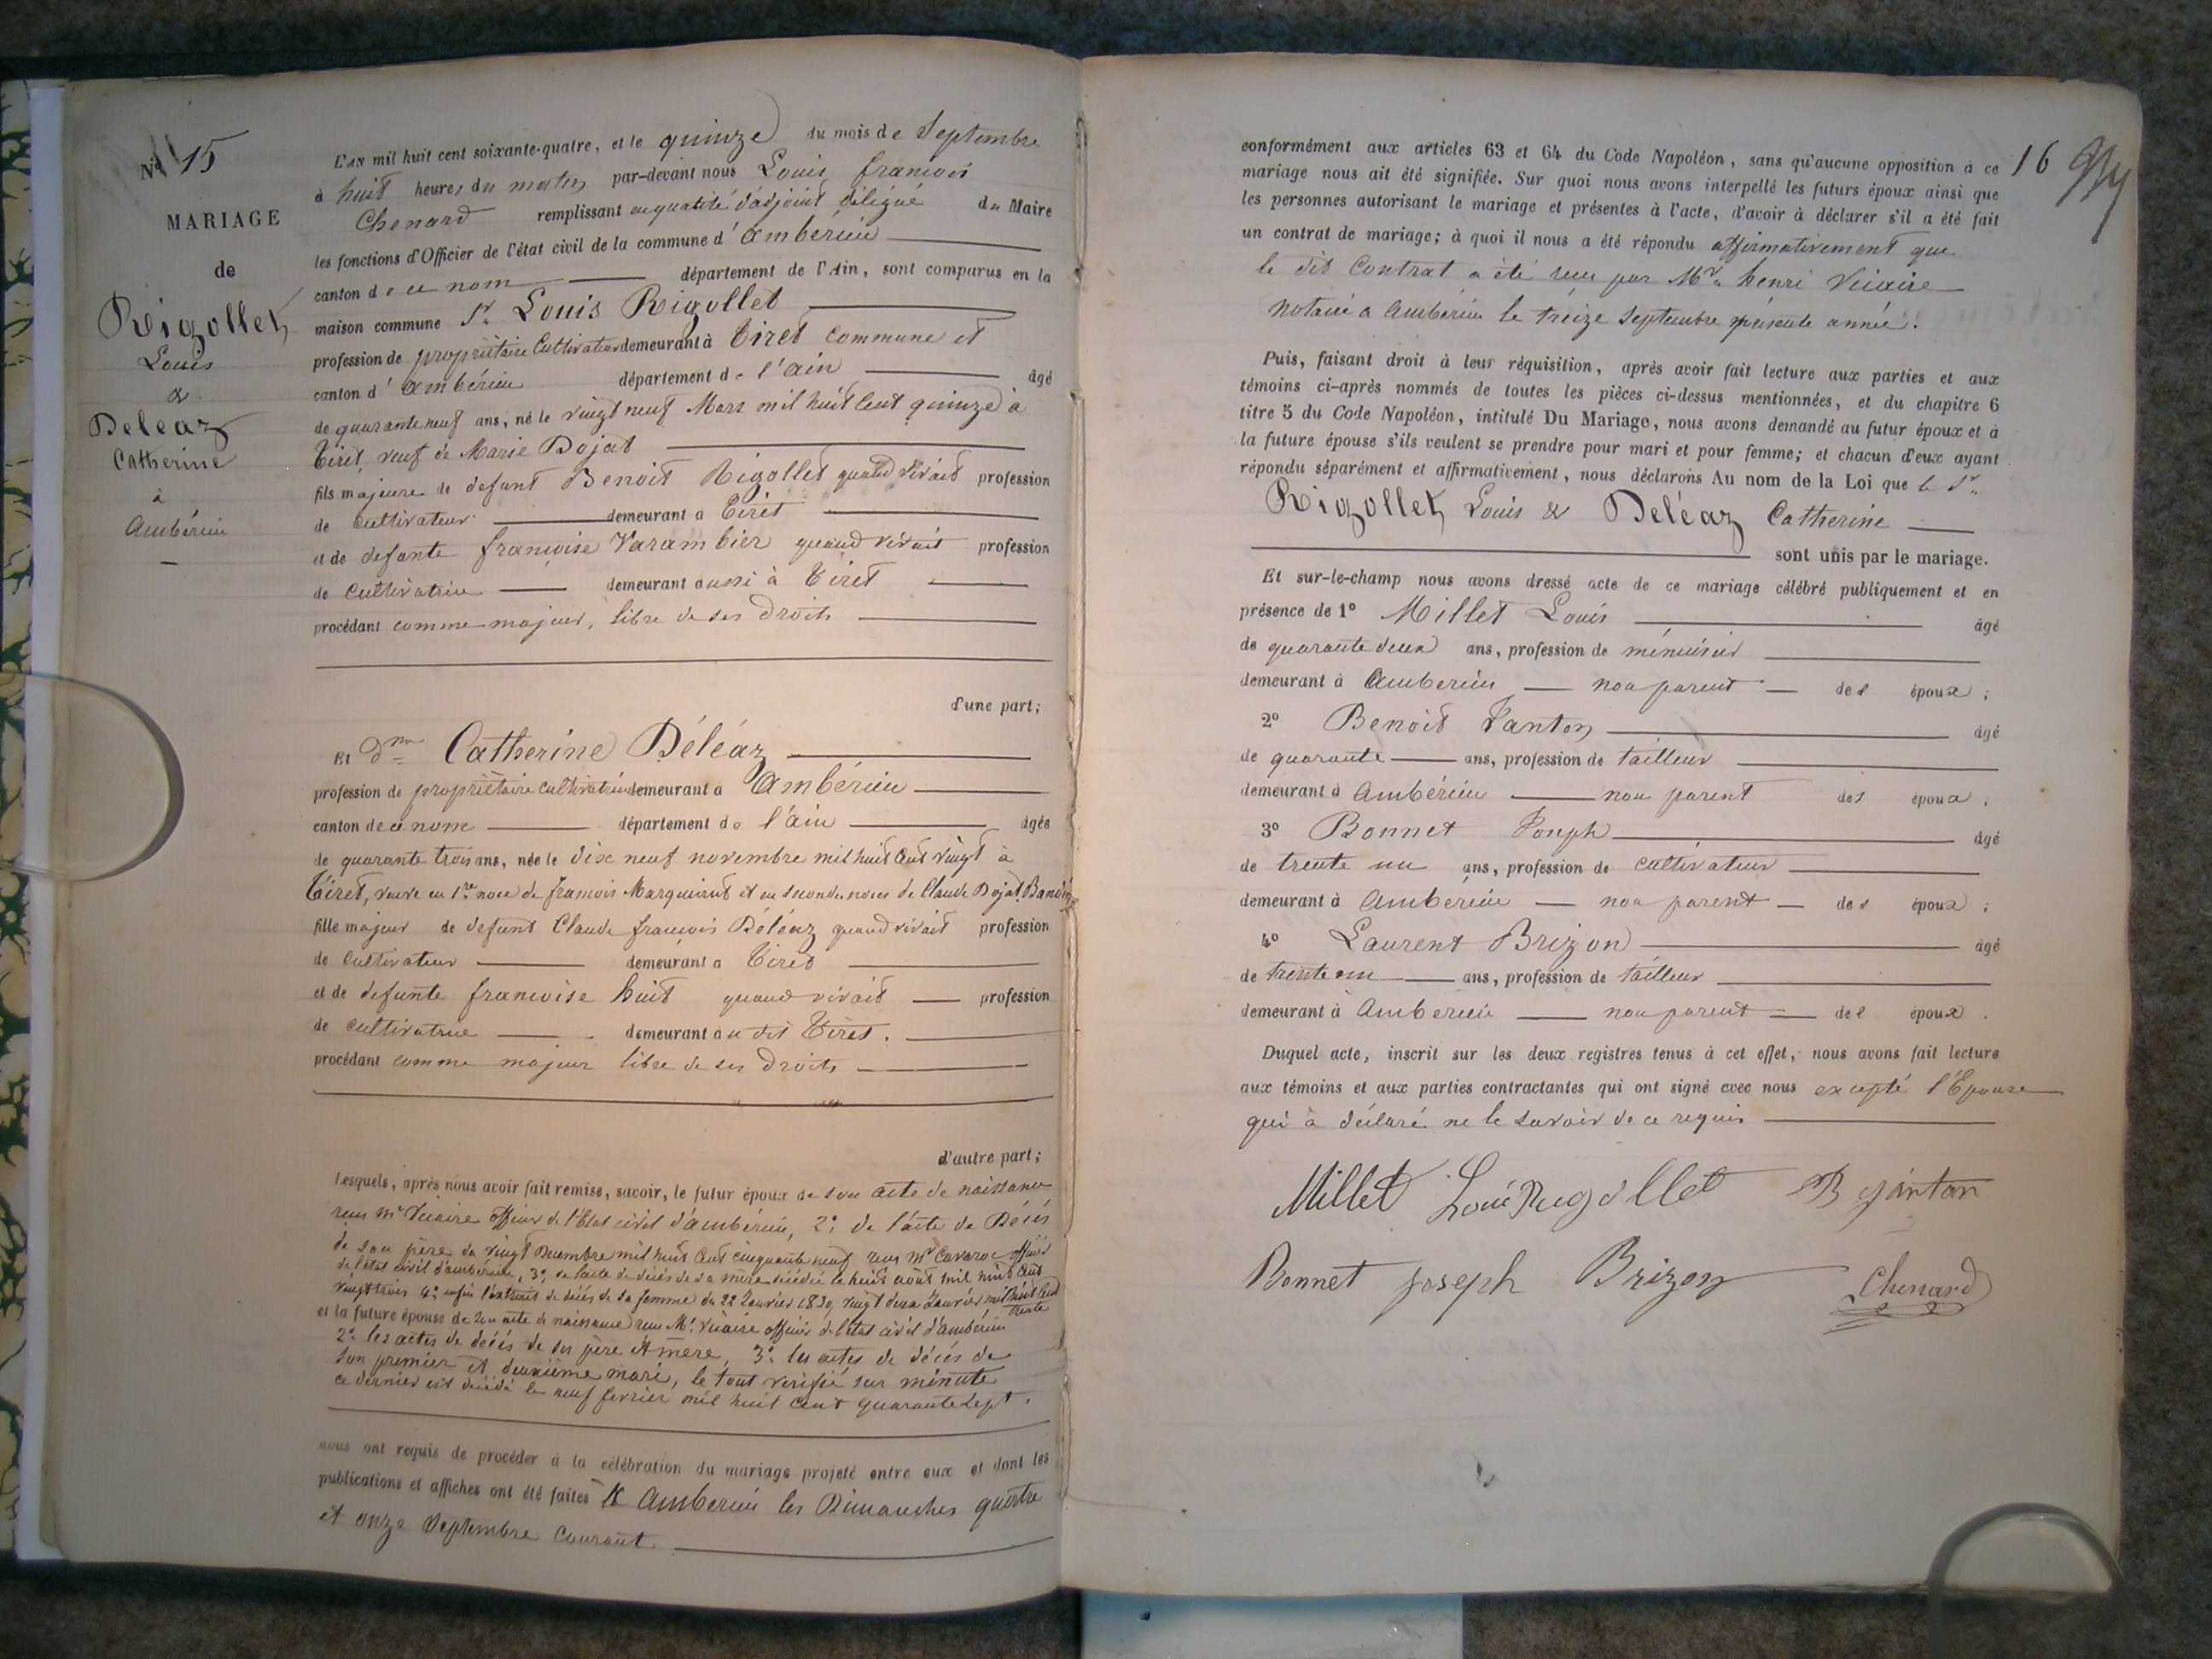 N° 15
MARIAGE
de
Rigollet
Louis
&
Deleaz
Catherine
à
Ambérieu
L'AN mil huit cent soixante-quatre, et le quinze du mois de Septembre
à huit heures du matin par-devant nous Louis françois
Chenard remplissant en qualité d'adjoint délégué du Maire
les fonctions d'Officier de l'état civil de la commune d'ambérieu
canton de ce nom département de l'Ain, sont comparus en la
maison commune Sr Louis Rigollet
profession de propriétaire Cultivateur demeurant à Tiret commune et
canton d'ambérieu département de l'ain âgé
de quarante neuf ans, né le vingt neuf Mars mil huit Cent quinze à
Tiret, veuf de Marie Dojat
fils majeure de defunt Benoit Rigollet quand vivait profession
de cultivateur demeurant à Tiret
et de defunte françoise Varambier quand vivait profession
de cultivatrice demeurant aussi à Tiret
procédant comme majeur, libre de ses droits
d'une part;
Et dme Catherine Déléaz
profession de propriétaire cultivatrice demeurant à Ambérieu
canton de ce nom département de l'ain âgée
de quarante trois ans, née le dix neuf novembre mil huit Cent vingt à
Tiret, veuve en 1re noce de françois Marquirent et en seconde noces de Claude Dojat Bandin
fille majeur de defunt Claude françois Déléaz quand vivait profession
de Cultivateur demeurant à Tiret
et de defunte françoise huit quand vivait profession
de cultivatrice demeurant au dit Tiret.
procédant comme majeur libre de ses droits
d'autre part;
lesquels, après nous avoir fait remise, savoir, le futur époux de son acte de naissance
reçu Mr Vicaire officier de l'Etat civil d'ambérieu, 2° de l'acte de Décès
de son père du vingt Décembre mil huit Cent cinquante neuf reçu Mr Cavaroc officier
de l'état civil d'ambérieu, 3° de l'acte de décès de sa mère décédée le huit août mil huit Cent
vingt trois 4° enfin l'extrait de décès de sa femme du 22 Janvier 1830 vingt deux Janvier mil huit Cent
trente
et la future épouse de son acte de naissance reçu Mr. Vicaire officier de l'état civil d'ambérieu
2° les actes de décès de ses père et mère, 3° les actes de décès de
son premier et deuxième mari, le tout vérifié sur minute
ce dernier est décédé le neuf fevrier mil huit Cent quarante sept.
nous ont requis de procéder à la célébration du mariage projeté entre eux et dont les
publications et affiches ont été faites à Ambérieu les Dimanches quatre
et onze Septembre Courant
16
conformément aux articles 63 et 64 du Code Napoléon, sans qu'aucune opposition à ce
mariage nous ait été signifiée. Sur quoi nous avons interpellé les futurs époux ainsi que
les personnes autorisant le mariage et présentes à l'acte, d'avoir à déclarer s'il a été fait
un contrat de mariage; à quoi il nous a été répondu affirmativement que
le dit Contrat a été reçu par Mr. henri Vicaire
notaire a Ambérieu le treize Septembre présente année.
Puis, faisant droit à leur réquisition, après avoir fait lecture aux parties et aux
témoins ci-après nommés de toutes les pièces ci-dessus mentionnées, et du chapitre 6
titre 5 du Code Napoléon, intitulé Du Mariage, nous avons demandé au futur époux et à
la future épouse s'ils veulent se prendre pour mari et pour femme; et chacun d'eux ayant
répondu séparément et affirmativement, nous déclarons Au nom de la Loi que le Sr.
Rigollet Louis & Deléaz Catherine
sont unis par le mariage.
Et sur-le-champ nous avons dressé acte de ce mariage célébré publiquement et en
présence de 1° Millet Louis âgé
de quarante deux ans, profession de ménuisier
demeurant à Amberieu non parent des époux;
2° Benoit Janton âgé
de quarante ans, profession de tailleur
demeurant à Ambérieu non parent des époux;
3° Bonnet Joseph âgé
de trente un ans, profession de cultivateur
demeurant à Amberieu non parent des époux;
4° Laurent Brizon âgé
de trente un ans, profession de tailleur
demeurant à Amberieu non parent des époux.
Duquel acte, inscrit sur les deux registres tenus à cet effet, nous avons fait lecture
aux témoins et aux parties contractantes qui ont signé avec nous excepté l'Epouse
qui à déclaré ne le savoir de ce requis
Millet Loui Rigollet B janton
Bonnet joseph Brizon Chenard